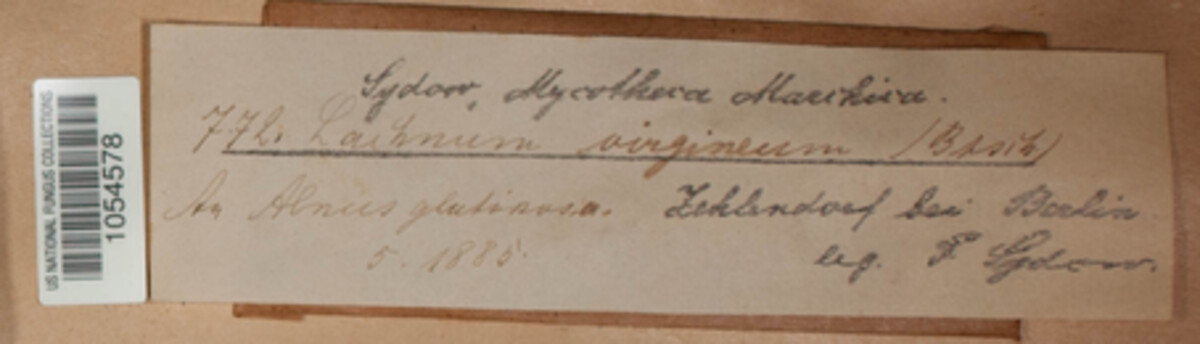 US NATIONAL FUNGUS COLLECTIONS
1054578
Sydow, Mycotheca Marchica.
772. Lachnum virgineum (Batsch)
An Alnus glutinosa. Zehlendorf bei Berlin
5. 1885. leg. P. Sydow.